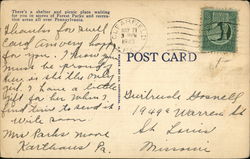 There's a shelter and picnic place waiting
for you in scores of Forest Parks and recrea-
tion areas all over Pennsylvania.
Thanks for swell
Card. Am very happy
for you. I know you
must be proud
she is still the only
girl. I have a little
gift for her. John's
first time to send it
Write soon
Mrs Parks Moore
Karthaus Pa.
POST CARD
Gertrude Gosnell
1949 a Warren St
St Louis
Missouri